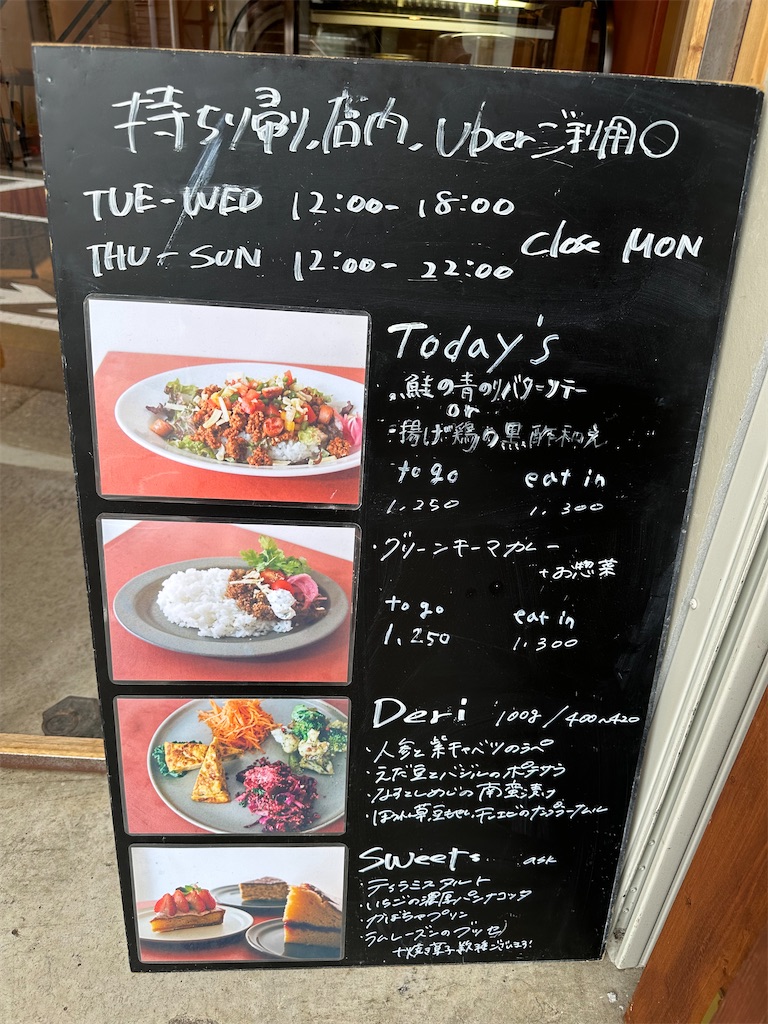 持ち帰り、店内、Uberご利用○
TUE-WED 12:00- 18:00
THU-SUN 12:00- 22:00
Close MON
Today's
・鮭の青のりバターソテー
or
・揚げ鶏の黒酢和え
to go eat in
1,250 1,300
・グリーンキーマカレー
+お惣菜
to go eat in
1,250 1,300
Deri 100g/400~420
・人参と紫キャベツのラペ
・えだ豆とバジルのポテサラ
・なすとしめじの南蛮漬け
・ほうれん草、豆もやし、干エビのナンプラーナムル
Sweets ask
・テラミスタルト
・いちごの濃厚パンナコッタ
・かぼちゃプリン
・ラムレーズンのブッセ
+焼き菓子数種ございます!